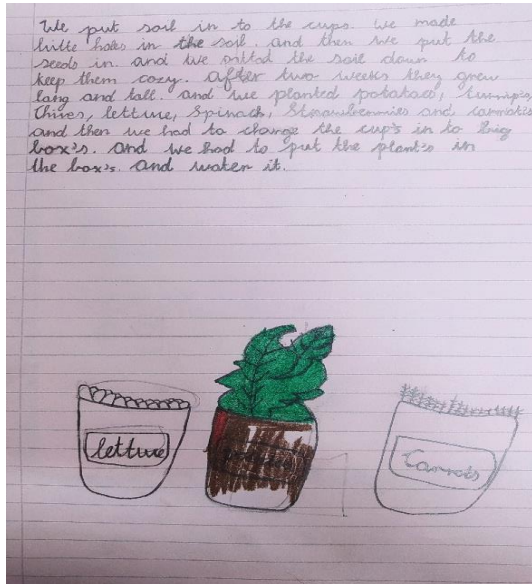 We put soil in to the cups. we made
little holes in the soil. and then we put the
seeds in. and we patted the soil down to
keep them cozy. after two weeks they grew
long and tall. and we planted potatoes, turnips,
Chives, lettuce, Spinach, Strawberries and carrots
and then we had to change the cup's in to big
box's. and we had to put the plant's in
the box's. and water it.
lettuce
Carrots